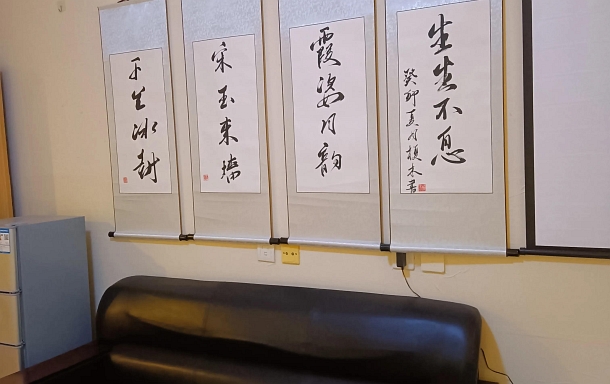 生生不息
癸卯夏月木书
霞姿月韵
宋玉东墙
生冰